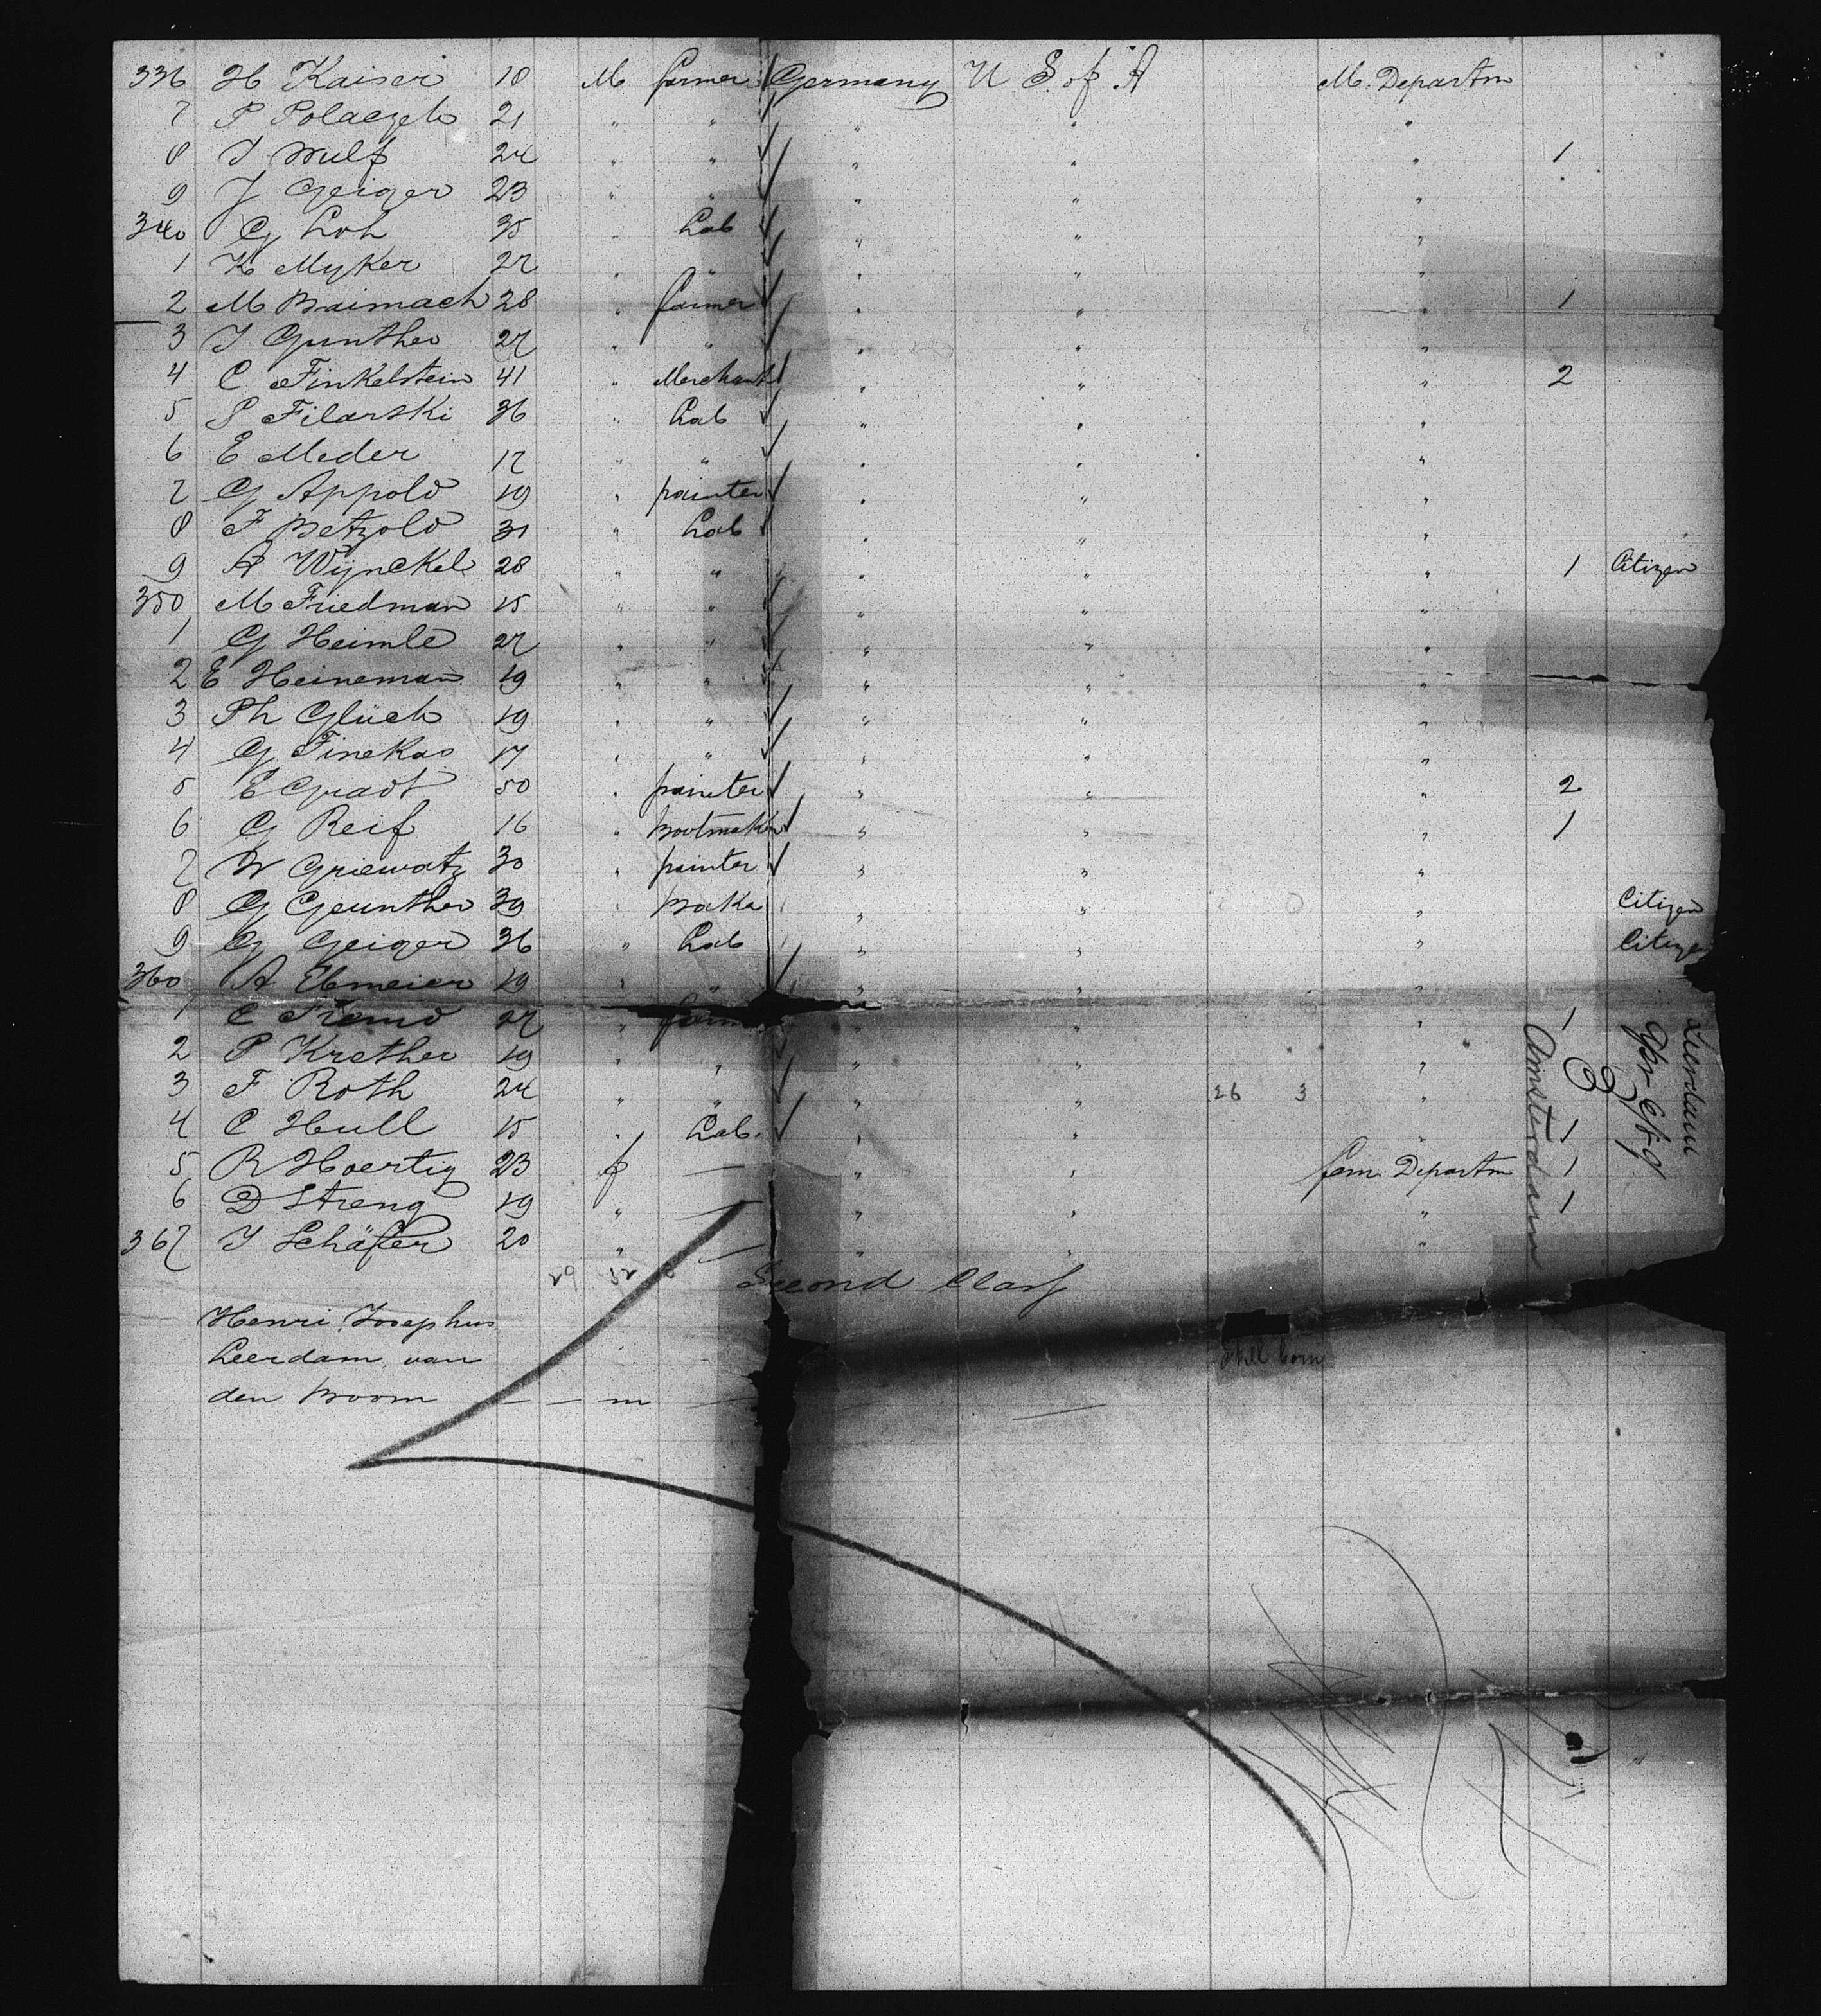 336 H Kaiser 18 M farmer Germany U S. of A M. Departm
7 P Polaczek 21 " " " " "
8 J Wulf 24 " " " " " 1
9 J Geiger 23 " " " " "
340 G Loh 35 " Lab " " "
1 K Myker 27 " " " " "
2 M Baimach 28 " farmer " " " 1
3 J Gunther 27 " " " " "
4 C Finkelstein 41 " Merchant " " " 2
5 S Filarski 36 " Lab " " "
6 E Meder 17 " " " " "
7 G Appold 19 " painter " " "
8 F Betzold 31 " Lab " " "
9 A Wijnckel 28 " " " " " 1 Citizen
350 M Friedman 15 " " " " "
1 G Heimle 27 " " " " "
2 E Heineman 19 " " " " "
3 Ph Glück 19 " " " " "
4 G Finekas 17 " " " " "
5 E Gradt 50 " painter " " " 2
6 G Reif 16 " bootmaker " " " 1
7 W Griewatz 30 " painter " " "
8 G Geunther 39 " " " " Citizen
9 G Geiger 36 " Lab " " " Citizen
360 A Ebmeier 19 " " " " "
1 C 27 " farm " " " 1
2 P Krether 19 " " " " "
3 F Roth 24 " " " " 26 3 "
4 C Hull 15 " Lab. " " " 1
5 R Hoertig 23 f — " " fem. Departm 1
6 D Streng 19 " — " " " 1
367 J Schäfer 20 " — " " "
Amsterdam
Second Class
Henri Josephus
Leerdam van
den Boom — — m — —
Still born